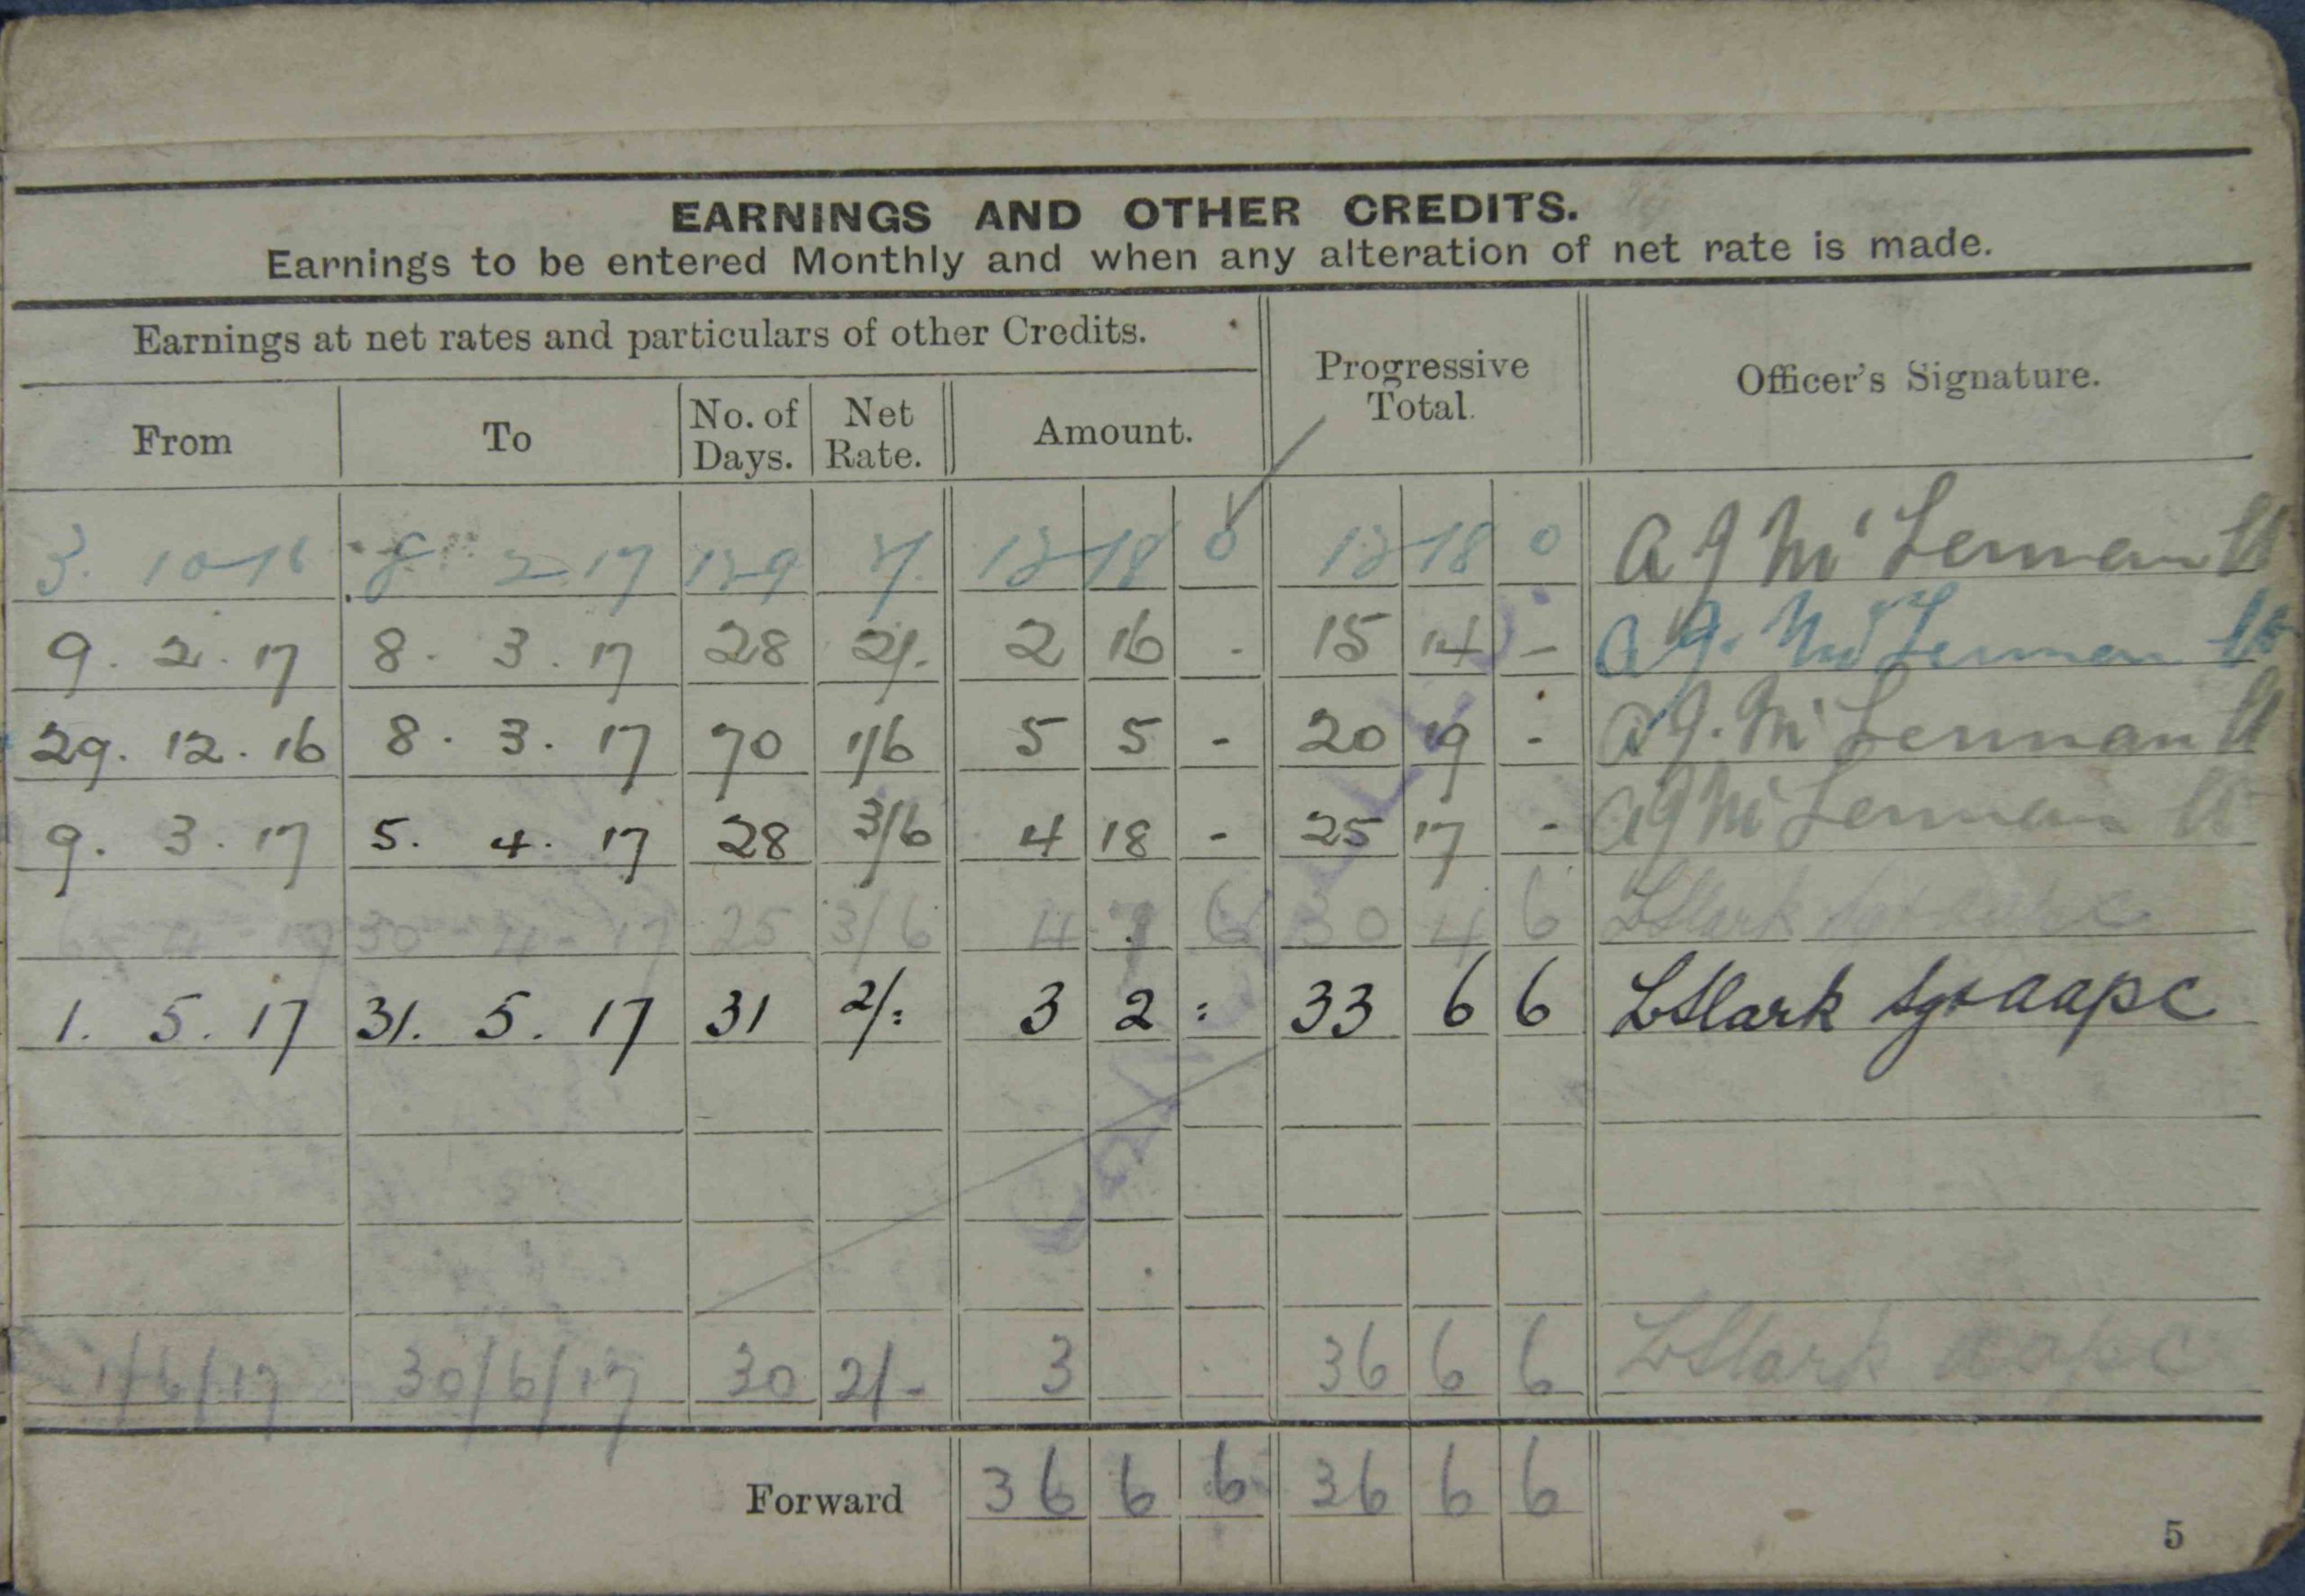 EARNINGS AND OTHER CREDITS.
Earnings to be entered Monthly and when any alteration of net rate is made.
Earnings at net rates and particulars of other Credits.
Progressive Total.
Officer's Signature.
From To No. of Days. Net Rate. Amount.
3. 10-16 8 2.17 129 2/. 12 18 0 12 18 0
9. 2. 17 8. 3. 17 28 2/. 2 16 - 15 14 -
29. 12. 16 8. 3. 17 70 1/6 5 5 - 20 19 -
9. 3. 17 5. 4. 17 28 3/6 4 18 - 25 17 -
6 - 4 - 17 30 - 4 - 17 25 3/6 4 7 6 30 4 6
1. 5. 17 31. 5. 17 31 2/: 3 2 : 33 6 6 Sgt aapc
1/6/17 30/6/17 30 2/- 3 36 6 6 aapc
Forward 36 6 6 36 6 6
5